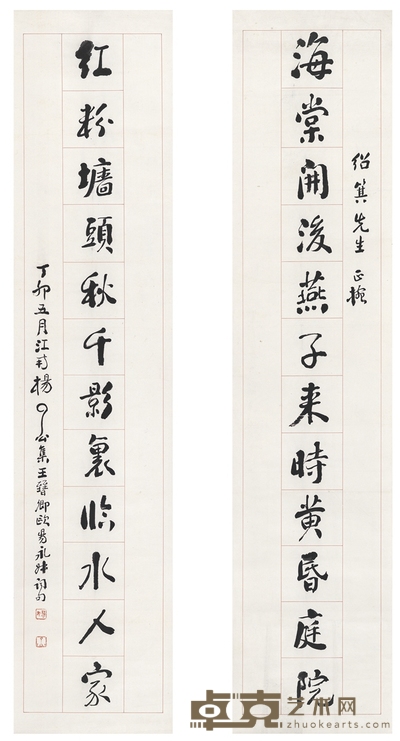 紹箕先生 正
海棠開後燕子来時黄昏庭院
紅粉墻頭秋千影裏臨水人家
丁卯五月江南楊了公集王晉卿歐陽永叔詞句
卓克艺术网
zhuokearts.com